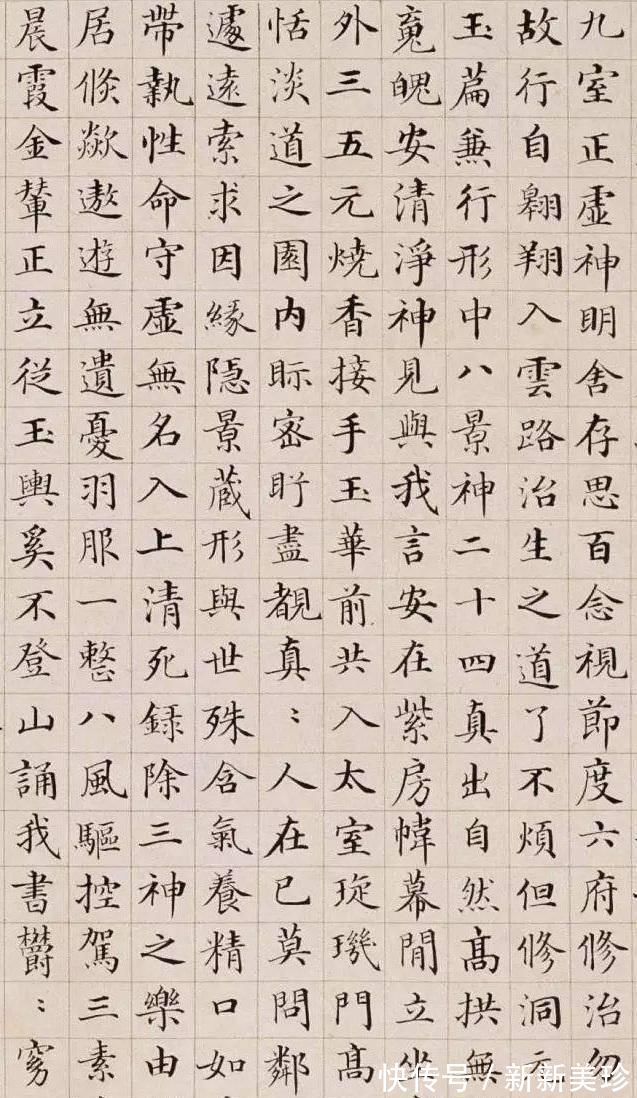 九室正虛神明舍存思百念視節度六府修治勿
故行自翱翔入雲路治生之道了不煩但修洞元
玉篇兼行形中八景神二十四真出自然高拱無
魂魄安清淨神見與我言安在紫房幃幕間立坐
外三五元燒香接手玉華前共入太室琁璣門高
恬淡道之園內眎密盻盡覩真〻人在已莫問鄰
遽遠索求因緣隱景藏形與世殊含氣養精口如
帶執性命守虛無名入上清死錄除三神之樂由
居倏欻遨遊無遺憂羽服一整八風驅控駕三素
晨霞金輦正立從玉輿奚不登山誦我書欝〻窈
快传号／新新美珍